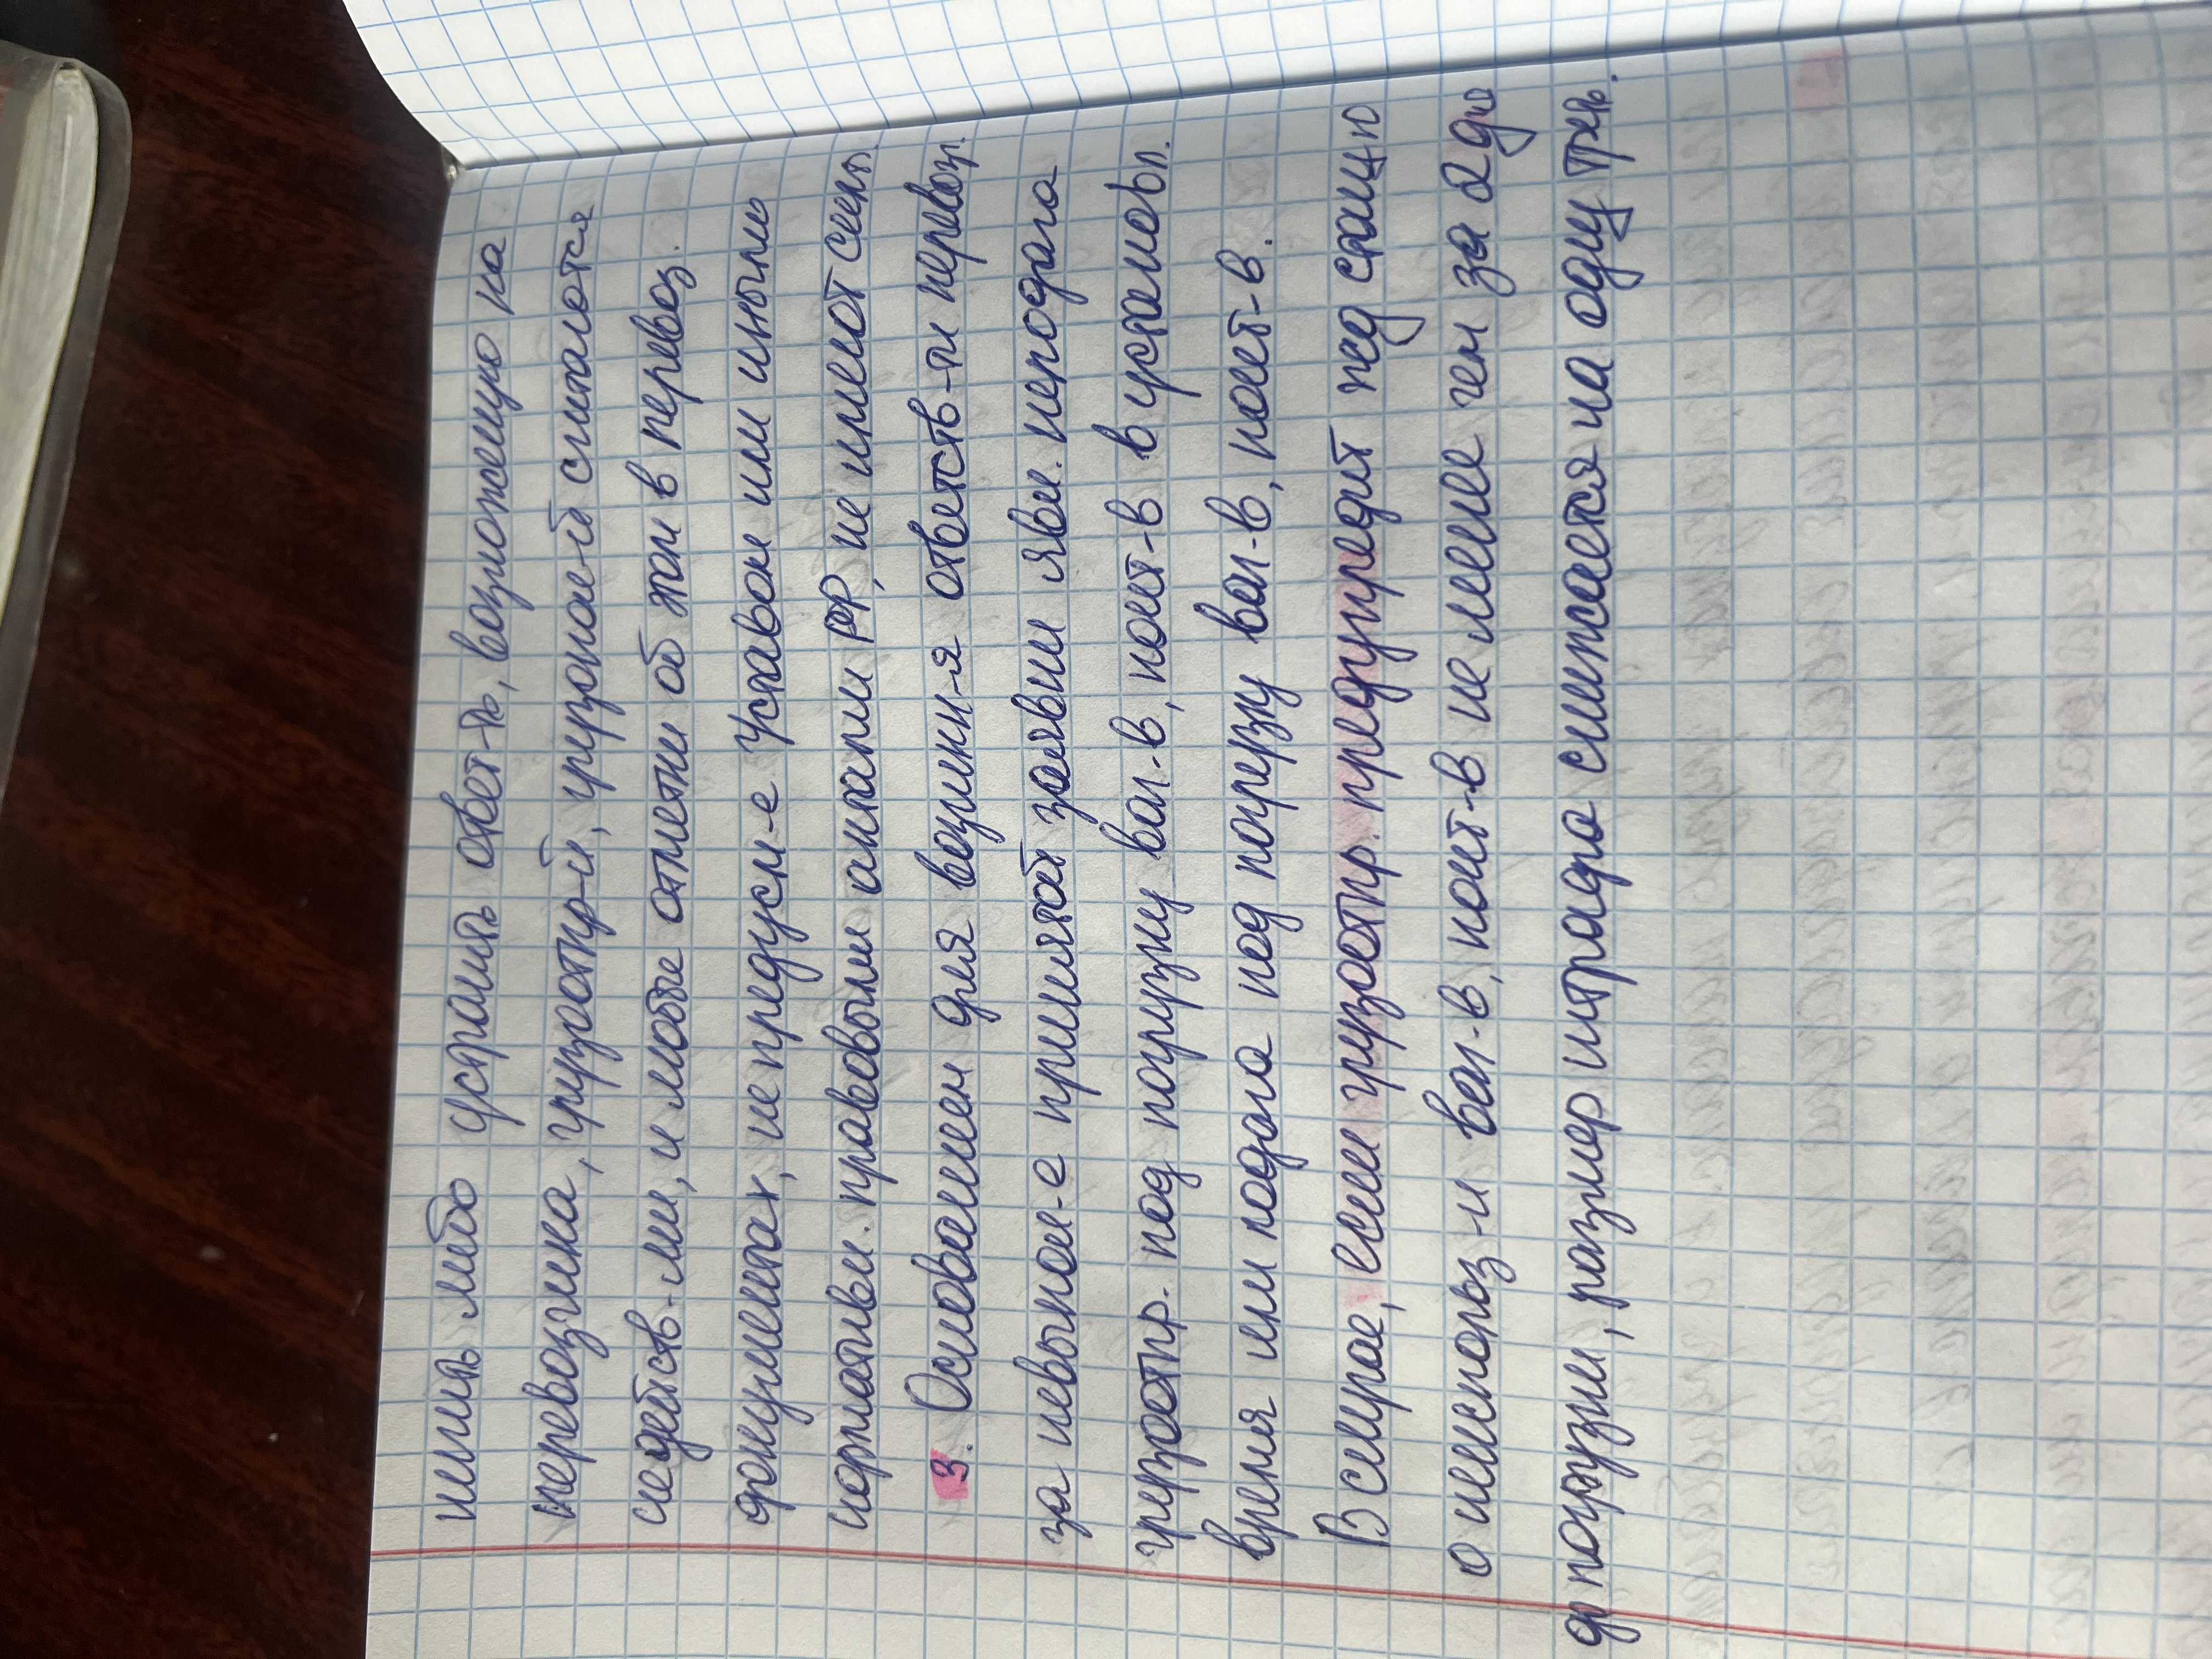 нить либо устранить ответ-ть, возложенную на
перевозчика, грузоотпр-й, грузопол-й считаются
недейств-ми, и любые отметки об этом в перевоз.
документах, не предусм-е Уставом или иными
нормативн. правовыми актами РФ, не имеют силы.
3. Основанием для возникн-я ответств-ти перевоз.
за невыпол-е принятой заявки явл. неподача
грузоотпр. под погрузку ваг-в, конт-в в установл.
время или подача под погрузку ваг-в, конт-в.
В случае, если грузоотпр. предупредит жд станцию
о неиспольз-и ваг-в, конт-в не менее чем за 2 дня
до погрузки, размер штрафа снижается на одну треть.